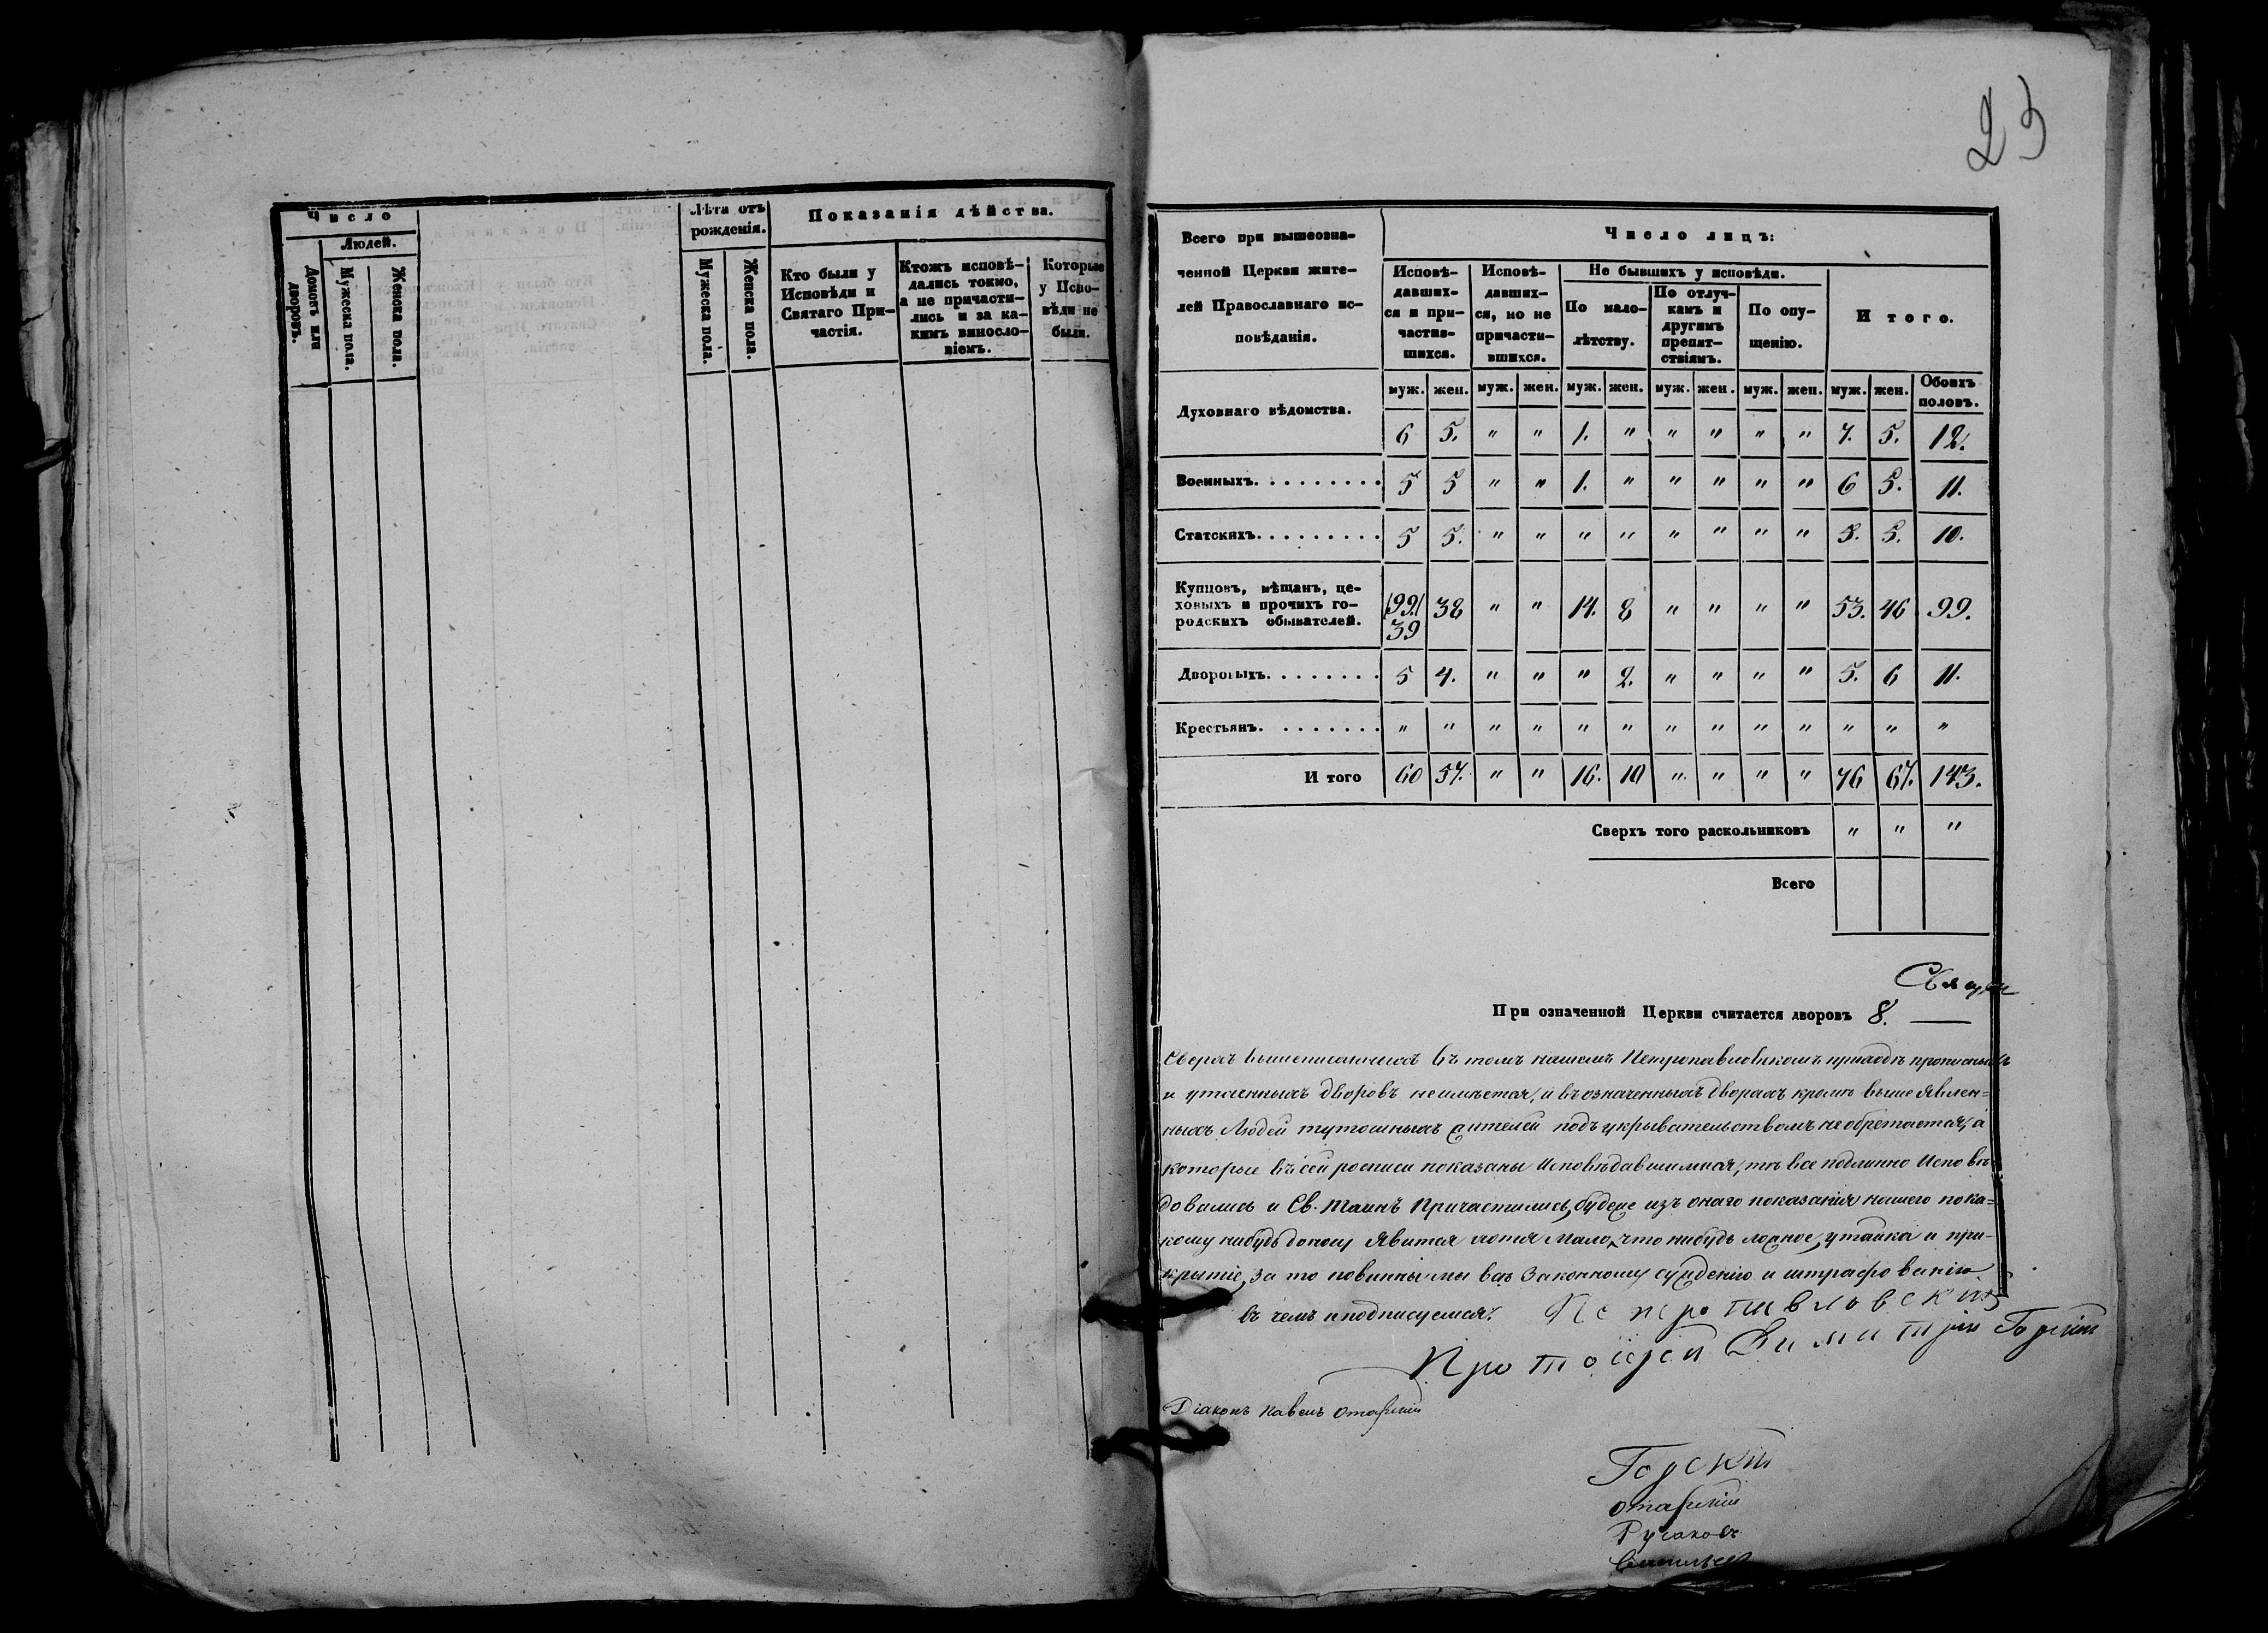 23
Число
Людей.
Домовъ или дворовъ.
Мужеска пола.
Женска пола.
Лѣта отъ
рожденія.
Мужеска пола.
Женска пола.
Показанія дѣйства.
Кто были у
Исповѣди и
Святаго При-
частія.
Ктожъ исповѣ-
дались токмо,
а не причасти-
лись и за ка-
кимъ виносло-
віемъ.
Которые
у Испо-
вѣди не
были.
Всего при вышеозна-
ченной Церкви жите-
лей Православнаго ис-
повѣданія.
Число лицъ:
Исповѣ-
давших-
ся и при-
частив-
шихся.
Исповѣ-
давших-
ся, но не
причасти-
вшихся.
Не бывшихъ у исповѣди.
По мало-
лѣтству.
По отлуч-
камъ и
другимъ
препят-
ствіямъ.
По опу-
щенію.
Итого.
муж. жен. муж. жен. муж. жен. муж. жен. муж. жен. муж. жен. Обоихъ
половъ.
Духовнаго вѣдомства. 6 5. " " 1. " " " " " 7. 5. 12.
Военныхъ. . . . . . . . . 5 5 " " 1. " " " " " 6 5. 11.
Статскихъ. . . . . . . . . 5 5. " " " " " " " " 5. 5. 10.
Купцовъ, мѣщанъ, це-
ховыхъ и прочихъ го-
родскихъ обывателей. (99) 38 " " 14. 8 " " " " 53. 46 99.
39
Дворовыхъ. . . . . . . . 5 4. " " " 2. " " " " 5. 6 11.
Крестьянъ. . . . . . . . " " " " " " " " " " " " "
И того 60 57. " " 16. 10 " " " " 76 67. 143.
Сверхъ того раскольниковъ " " "
Всего
При означенной Церкви считается дворовъ 8. —
Сверхъ вышеписанныхъ въ томъ нашемъ Петропавловскомъ приходѣ прописныхъ
и утаенныхъ дворовъ неимѣется, и въ означенныхъ дворахъ кромѣ выше явлен-
ныхъ Людей тутошныхъ жителей подъ укрывательствомъ не обретается, а
которые въ сей росписи показаны Исповѣдавшимися, тѣ все подлинно Исповѣ-
довались и Св. Таинъ Причастились, будеже изъ онаго показания нашего пока-
кому нибудь доносу явится хотя мало, что нибудь ложное, утайка и при-
крытіе, за то повинны мы въ Законному сужденію и штрафованію
въ чемъ и подписуемся. Петропавловскій
Протоіерей Димитрій Горскій
Діаконъ Павелъ
Горскій
Русаковъ